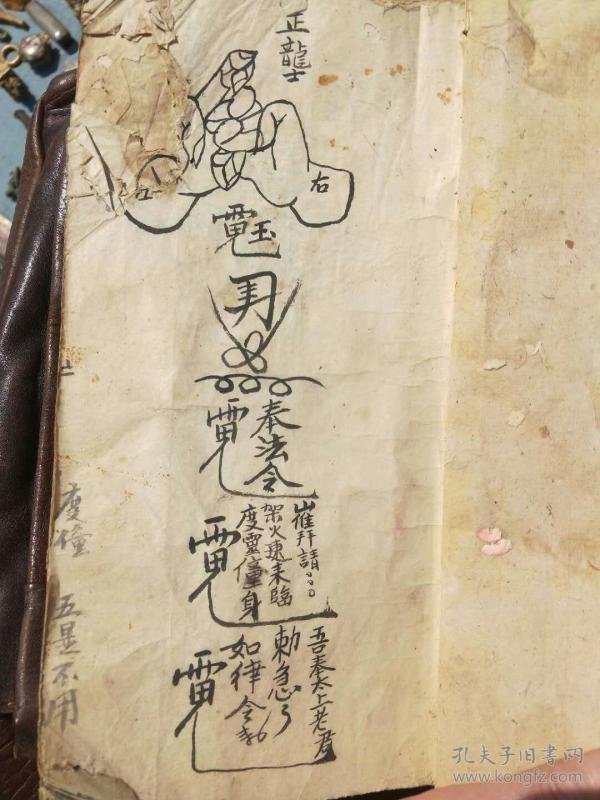 正龍士
右
左
玉
奉法令
崔拜請
架火速来臨
度靈僮身
吾奉太上老君
勅急々
如律令勅
度僮
五显不用
孔夫子旧书网
www.kongfz.com